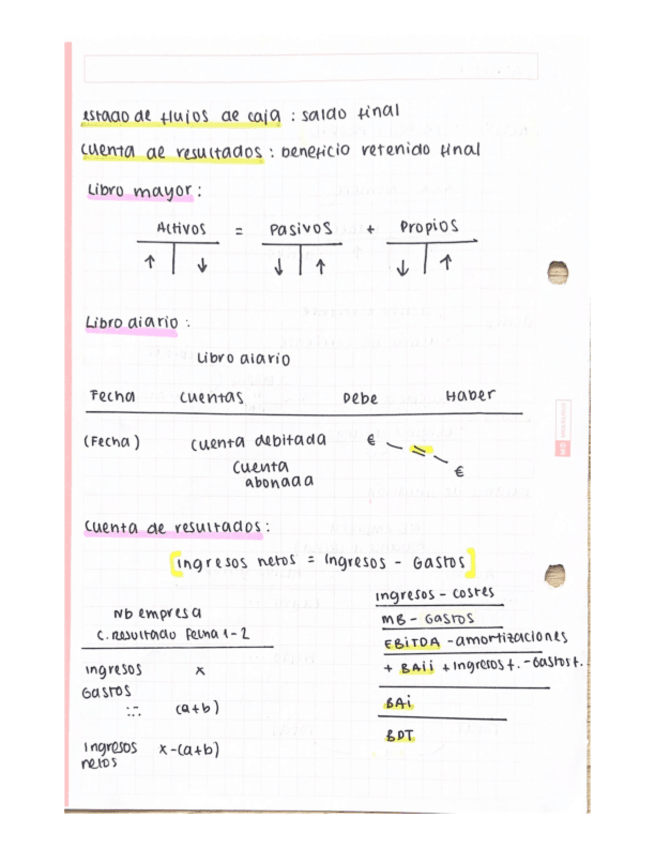 estado de flujos de caja : saldo final
cuenta de resultados : beneficio retenido final
Libro mayor :
Activos = Pasivos + Propios
↑ ↓ ↓ ↑ ↓ ↑
Libro diario :
Libro diario
Fecha Cuentas Debe Haber
(Fecha) cuenta debitada € = €
Cuenta
abonada
Cuenta de resultados :
[Ingresos netos = Ingresos - Gastos]
Nb empresa
C. resultado Fecha 1-2
Ingresos x
Gastos
(a+b)
Ingresos x-(a+b)
netos
Ingresos - costes
MB - Gastos
EBITDA - amortizaciones
+ BAii + Ingresos f. - Gastos f.
BAi
BDT